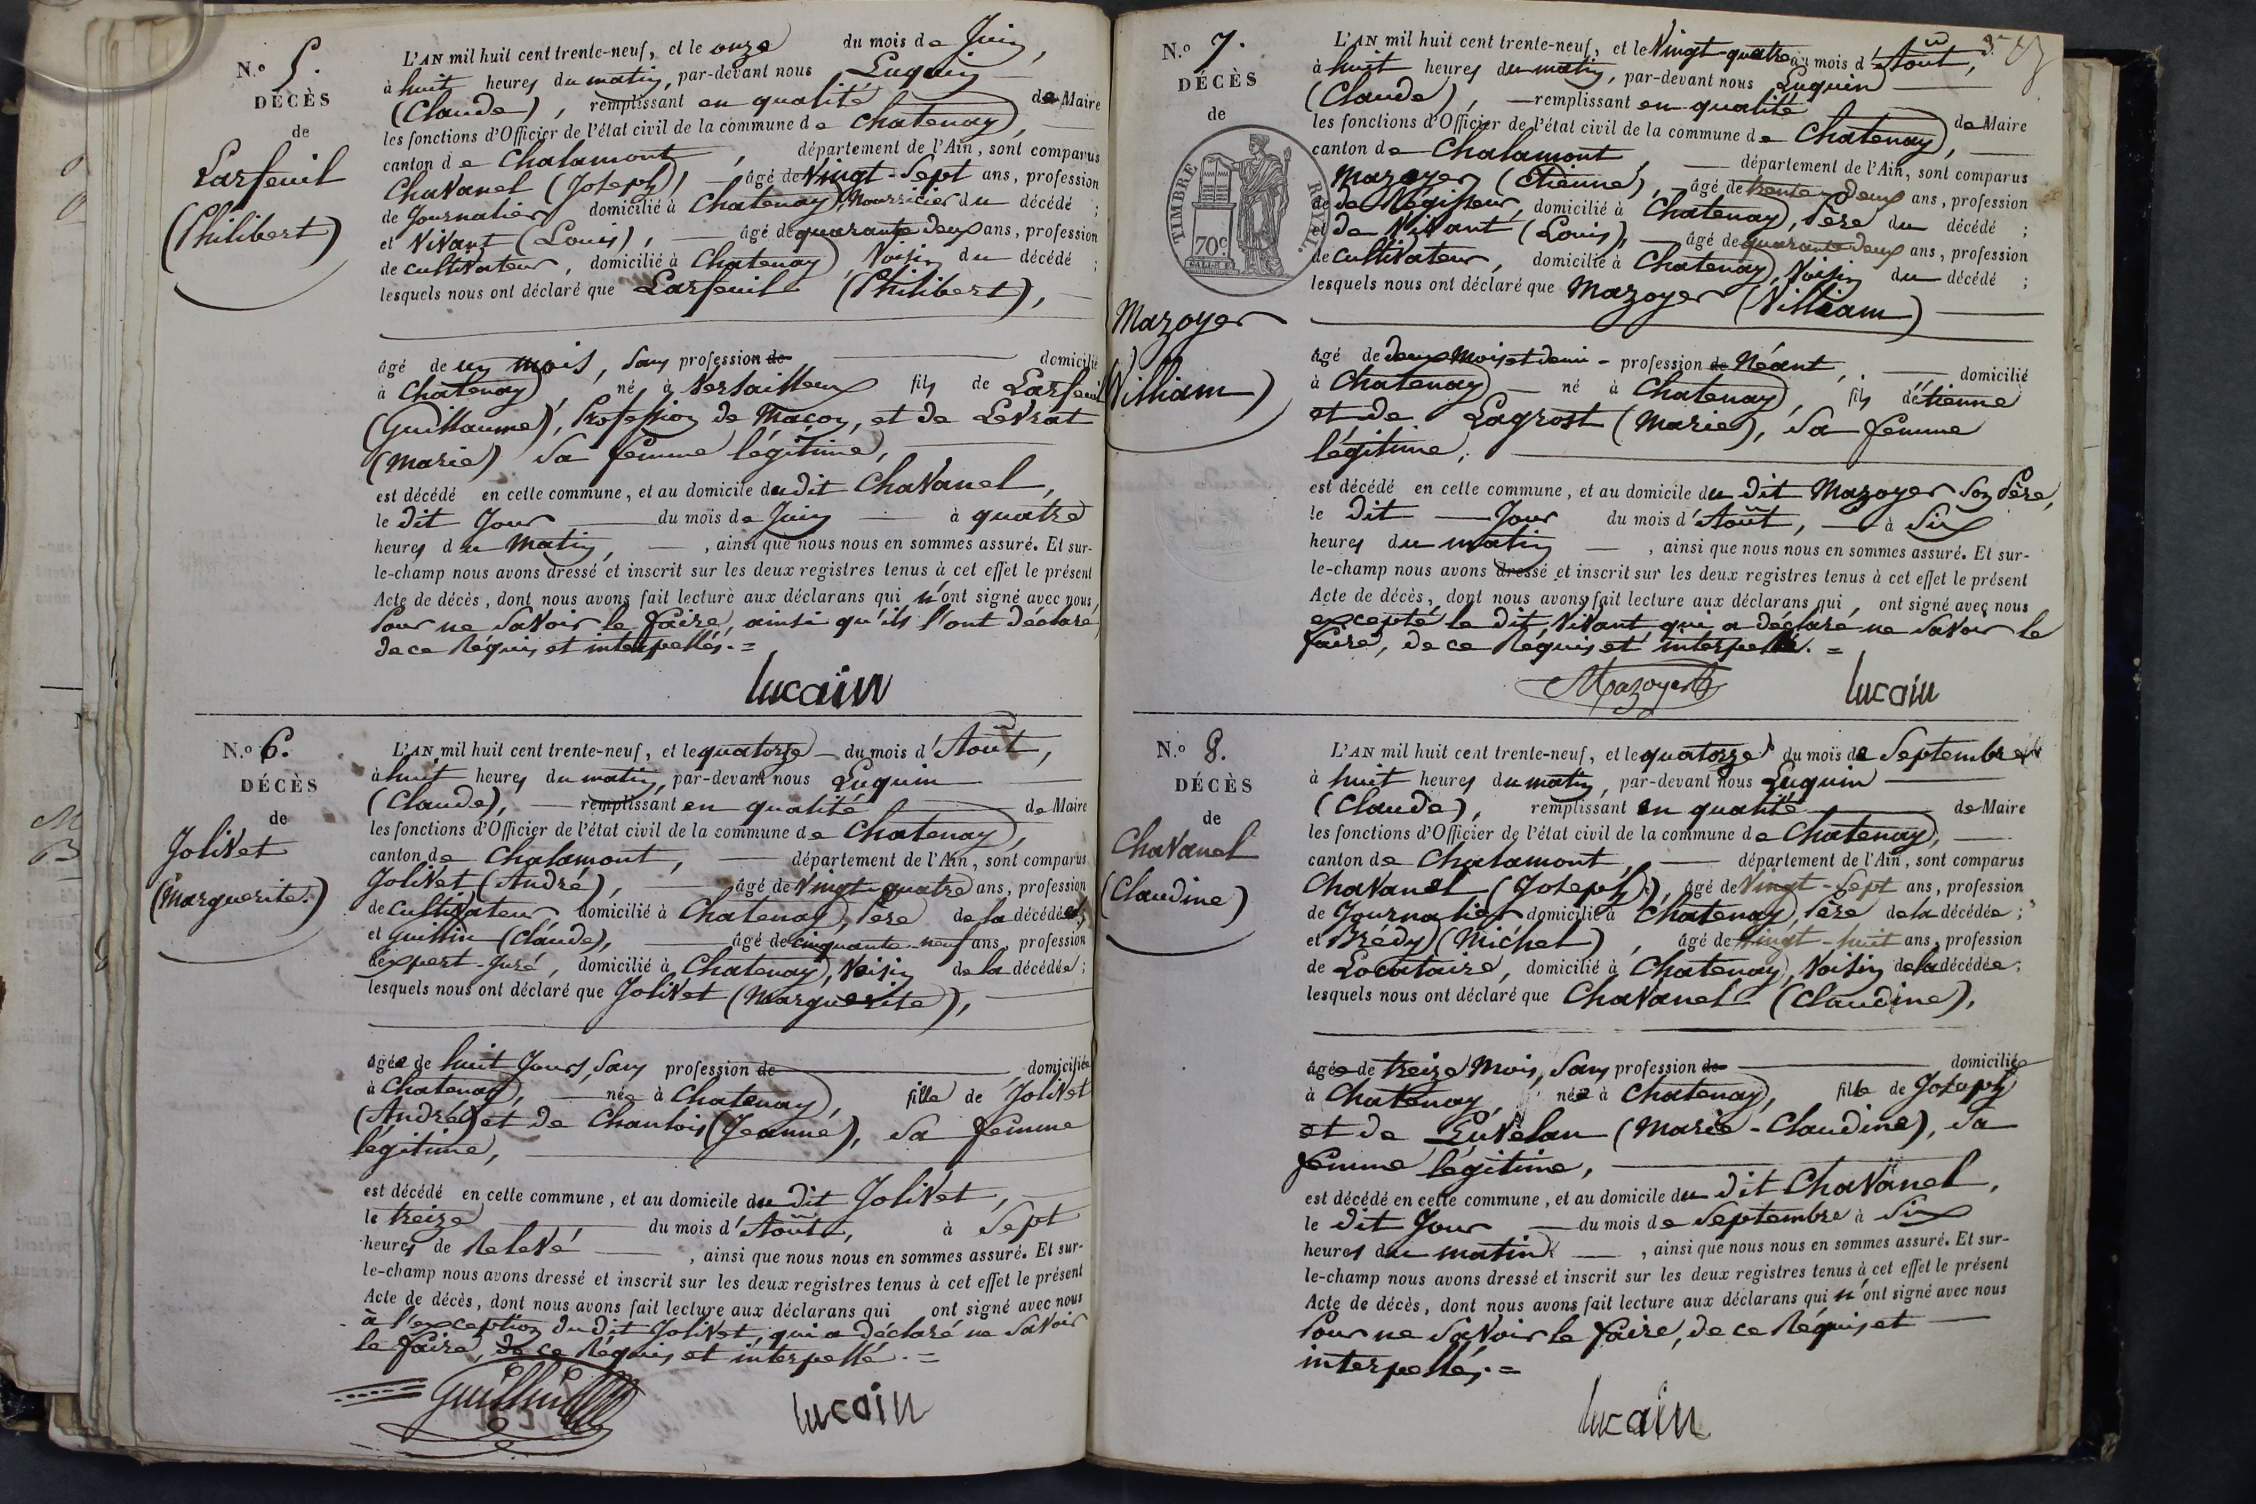 N.o 5.
DÉCÈS
de
Larfeuil
(Philibert)
L'AN mil huit cent trente-neuf, et le onze du mois de Juin,
à huit heures du matin, par-devant nous Luquin
(Claude), remplissant en qualité de Maire
les fonctions d'Officier de l'état civil de la commune de Chatenay,
canton de Chalamont, département de l'Ain, sont comparus
Chavanel (Joseph), âgé de Vingt-Sept ans, profession
de Journalier domicilié à Chatenay, Nourricier du décédé ;
et Vivant (Louis), âgé de quarante deux ans, profession
de cultivateur, domicilié à Chatenay, Voisin du décédé ;
lesquels nous ont déclaré que Larfeuil (Philibert),
âgé de un mois, Sans profession de domicilié
à Chatenay, né à Versailleux fils de Larfeuil
(Guillaume), Profession de Maçon, et de Levrat
(Marie) Sa femme légitime,
est décédé en cette commune, et au domicile du dit Chavanel,
le dit Jour du mois de Juin à quatre
heures du Matin, , ainsi que nous nous en sommes assuré. Et sur-
le-champ nous avons dressé et inscrit sur les deux registres tenus à cet effet le présent
Acte de décès, dont nous avons fait lecture aux déclarans qui n'ont signé avec nous,
Pour ne Savoir le faire, ainsi qu'ils l'ont déclaré
de ce Réquis et interpellés. =
lucain
N.o 6.
DÉCÈS
de
Jolivet
(Marguerite.)
L'AN mil huit cent trente-neuf, et le quatorze du mois d'Août,
à huit heures du matin, par-devant nous Luquin
(Claude), remplissant en qualité de Maire
les fonctions d'Officier de l'état civil de la commune de Chatenay,
canton de Chalamont, département de l'Ain, sont comparus
Jolivet (André), âgé de Vingt quatre ans, profession
de Cultivateur domicilié à Chatenay, Père de la décédée ;
et Guillin (Claude), âgé de cinquante-neuf ans, profession
d'expert-Juré, domicilié à Chatenay, Voisin de la décédée ;
lesquels nous ont déclaré que Jolivet (Marguerite),
âgée de huit Jours, Sans profession de domiciliée
à Chatenay, née à Chatenay, fille de Jolivet
(André) et de Chanlois (Jeanne), Sa femme
légitime,
est décédé en cette commune, et au domicile du dit Jolivet,
le treize du mois d'Août, à Sept
heures de Relevé , ainsi que nous nous en sommes assuré. Et sur-
le-champ nous avons dressé et inscrit sur les deux registres tenus à cet effet le présent
Acte de décès, dont nous avons fait lecture aux déclarans qui ont signé avec nous
à l'exception du dit Jolivet, qui a déclaré ne Savoir
le faire, de ce Réquis et interpellé. =
Guillin
lucain
N.o 7.
DÉCÈS
de
TIMBRE ROYAL.
70c
Mazoyer
(William)
L'AN mil huit cent trente-neuf, et le Vingt-quatre du mois d'Août,
à huit heures du matin, par-devant nous Luquin
(Claude), remplissant en qualité de Maire
les fonctions d'Officier de l'état civil de la commune de Chatenay,
canton de Chalamont, département de l'Ain, sont comparus
Mazoyer (Etienne), âgé de trente deux ans, profession
de de Régisseur, domicilié à Chatenay, Père du décédé ;
et de Vivant (Louis), âgé de quarante deux ans, profession
de Cultivateur, domicilié à Chatenay, Voisin du décédé ;
lesquels nous ont déclaré que Mazoyer (William)
âgé de deux Mois et demi - profession de Néant, domicilié
à Chatenay, né à Chatenay, fils d'étienne
et de Lagrost (Marie), Sa femme
légitime,
est décédé en cette commune, et au domicile du dit Mazoyer Son Père,
le dit Jour du mois d'Août, à Six
heures du matin , ainsi que nous nous en sommes assuré. Et sur-
le-champ nous avons dressé et inscrit sur les deux registres tenus à cet effet le présent
Acte de décès, dont nous avons fait lecture aux déclarans qui, ont signé avec nous
excepté le dit Vivant qui a déclaré ne Savoir le
faire, de ce Réquis et interpellé. =
Mazoyer
lucain
N.o 8.
DÉCÈS
de
Chavanel
(Claudine)
L'AN mil huit cent trente-neuf, et le quatorze du mois de Septembre
à huit heures du matin, par-devant nous Luquin
(Claude), remplissant en qualité de Maire
les fonctions d'Officier de l'état civil de la commune de Chatenay,
canton de Chalamont, département de l'Ain, sont comparus
Chavanel (Joseph), âgé de Vingt-Sept ans, profession
de Journalier domicilié à Chatenay, Père de la décédée ;
et Brédy (Michel), âgé de Vingt-huit ans, profession
de Locataire, domicilié à Chatenay, Voisin de la décédée ;
lesquels nous ont déclaré que Chavanel (Claudine),
âgée de treize Mois, Sans profession de domiciliée
à Chatenay, née à Chatenay, fille de Joseph
et de Luvelan (Marie-Claudine), Sa
femme légitime,
est décédé en cette commune, et au domicile du dit Chavanel,
le dit Jour du mois de Septembre à Six
heures du matin , ainsi que nous nous en sommes assuré. Et sur-
le-champ nous avons dressé et inscrit sur les deux registres tenus à cet effet le présent
Acte de décès, dont nous avons fait lecture aux déclarans qui n'ont signé avec nous
Pour ne Savoir le faire, de ce Réquis et
interpellés. =
lucain